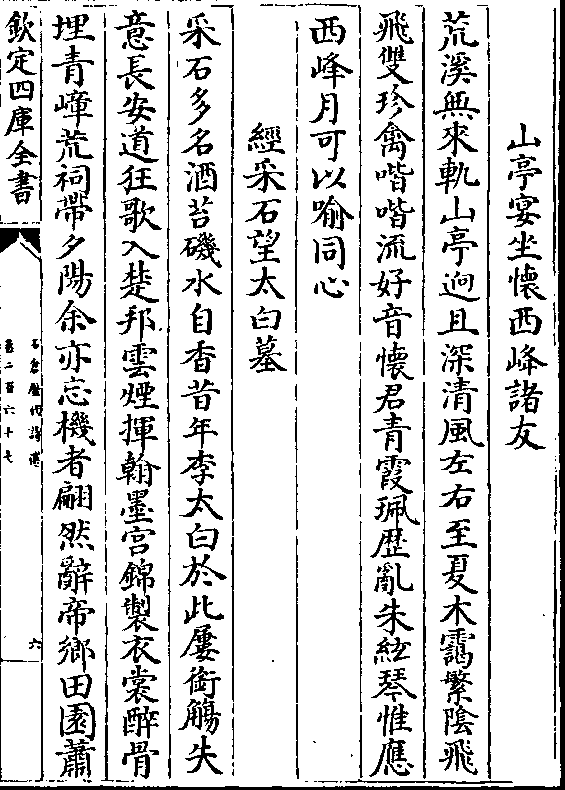 山亭宴坐懷西峰諸友
荒溪無來軌山亭逈且深清風左右至夏木靄繁陰飛
飛雙珍禽喈喈流好音懷君青霞珮歴亂朱絃琴惟應
西峰月可以喻同心
經采石望太白墓
采石多名酒苔磯水自香昔年李太白於此屢銜觴失
意長安道狂歌入楚邦雲煙揮翰墨宫錦製衣裳醉骨
埋青嶂荒祠帶夕陽余亦忘機者翩然辭帝鄉田園蕭
欽定四庫全書
石倉歴代詩選
卷二百六十七
六